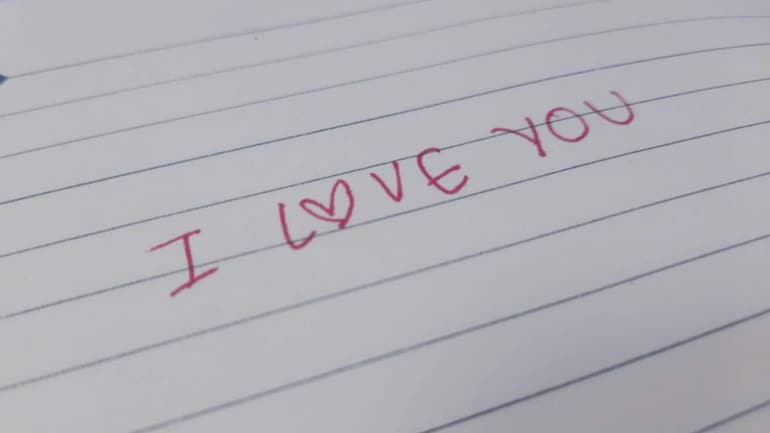 I L♡VE YOU